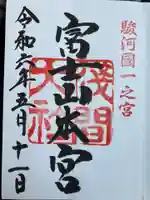 駿河國一之宮
富士山本宮
浅間大社
令和六年五月十一日